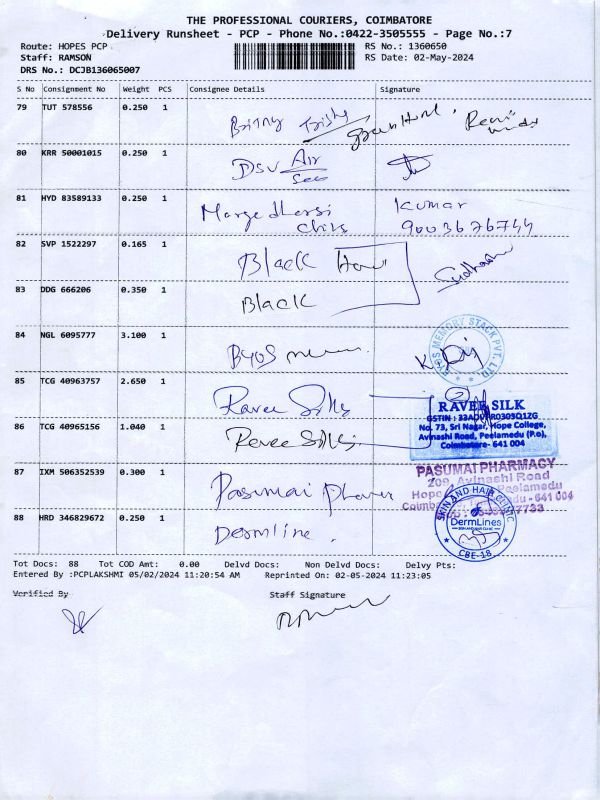 THE PROFESSIONAL COURIERS, COIMBATORE
Delivery Runsheet - PCP - Phone No.:0422-3505555 - Page No.:7
Route: HOPES PCP RS No.: 1360650
Staff: RAMSON RS Date: 02-May-2024
DRS No.: DCJB136065007
S No Consignment No Weight PCS Consignee Details Signature
79 TUT 578556 0.250 1
80 KRR 50001015 0.250 1 DSV Air
81 HYD 83589133 0.250 1 Kumar
9003676744
82 SVP 1522297 0.165 1 Black
83 DDG 666206 0.350 1 Black
84 NGL 6095777 3.100 1
MEMORY STACK PVT. LTD
85 TCG 40963757 2.650 1 Ravee Silks
86 TCG 40965156 1.040 1 Ravee Silks
RAVEE SILK
No. 73, Sri Nagar, Hope College,
Avinashi Road, Peelamedu (P.o),
Coimbatore- 641 004
87 IXM 506352539 0.300 1 Pasumai
PASUMAI PHARMACY
209, Avinashi Road
88 HRD 346829672 0.250 1 Dermline
SKIN AND HAIR CLINIC
DermLines
CBE-18
Tot Docs: 88 Tot COD Amt: 0.00 Delvd Docs: Non Delvd Docs: Delvy Pts:
Entered By :PCPLAKSHMI 05/02/2024 11:20:54 AM Reprinted On: 02-05-2024 11:23:05
Verified By Staff Signature